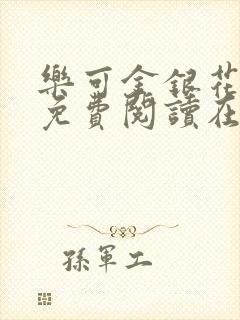 樂可金銀花
免費閱讀在
孫軍工